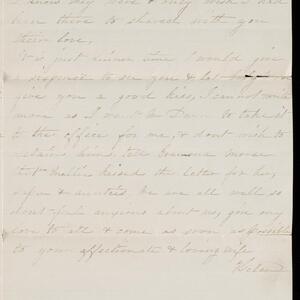 I know they were & only wish I had
been there to shared with you
their love.
It is just dinner time I would give
a sixpence to see you & let
give you a good kiss, I cannot write
more as I want Mr Dunn to take it
to the office for me, & dont wish to
detain him, tell Grandma Morse
that Mollie kissed the letter for her,
& aunties. We are all well so
dont feel anxious about us, give my
love to all & come as soon as possible
to your affectionate & loving wife